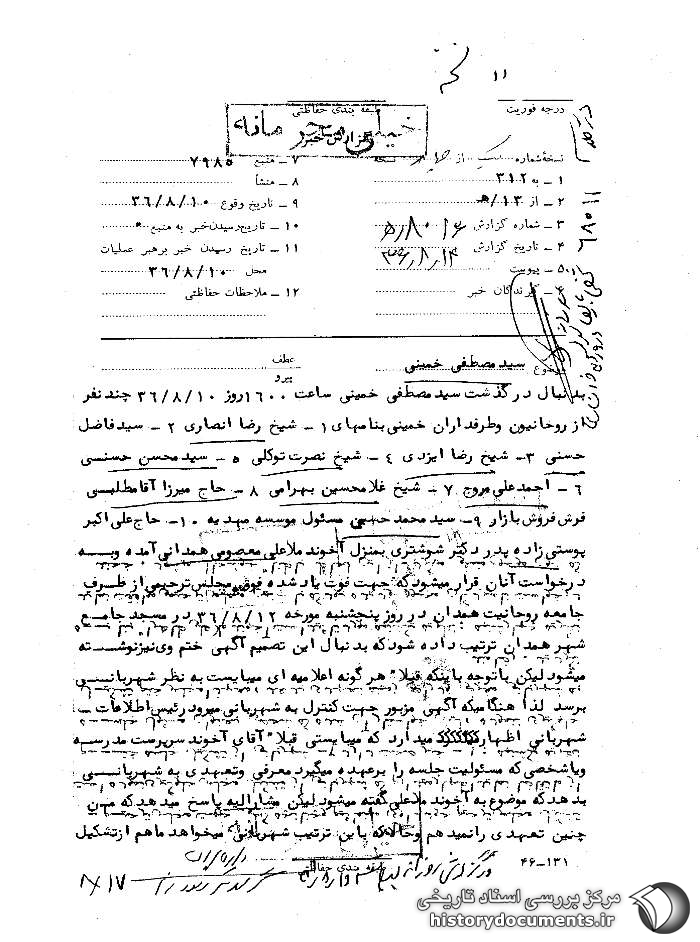 ۱۱
درجه فوریت
طبقه بندی حفاظتی
خیلی محرمانه
گزارش خبر
نسخهٔ شماره یک از نسخه
۱ ـ به ۳۱۲
۲ ـ از ۱۳/ه
۳ ـ شماره گزارش
۴ ـ تاریخ گزارش
۵ ـ پیوست
۶ ـ گیرندگان خبر
۷ ـ منبع ۷۹۸۵
۸ ـ منشأ
۹ ـ تاریخ وقوع ۳۶/۸/۱۰
۱۰ ـ تاریخ رسیدن خبر به منبع
۱۱ ـ تاریخ رسیدن خبر برهبر عملیات
محل ۳۶/۸/۱۰
۱۲ ـ ملاحظات حفاظتی
موضوع سید مصطفی خمینی
عطف
پیرو
بدنبال درگذشت سید مصطفی خمینی ساعت ۱۶۰۰ روز ۳۶/۸/۱۰ چند نفر
از روحانیون وطرفداران خمینی بنامهای ۱ ـ شیخ رضا انصاری ۲ ـ سید فاضل
حسنی ۳ـ شیخ رضا ایزدی ۴ ـ شیخ نصرت توکلی ۵ ـ سید محسن حسنی
۶ ـ احمدعلی مروج ۷ ـ شیخ غلامحسین بهرامی ۸ ـ حاج میرزا آقا مطلبی
فرش فروش بازار ۹ـ سید محمد مسئول موسسه مهدیه ۱۰ ـ حاج علی اکبر
پوستی زاده پدر دکتر شوشتری بمنزل آخوند ملاعلی معصومی همدانی آمده وبه
درخواست آنان قرار میشود که جهت فوت یاد شده فوق مجلس ترحیمی از طرف
جامعه روحانیت همدان در روز پنجشنبه مورخه ۳۶/۸/۱۲ در مسجد جامع
شهر همدان ترتیب داده شود که بدنبال این تصمیم آگهی ختم وی نیز نوشته
میشود لیکن باتوجه باینکه قبلا" هر گونه اعلامیه ای میبایست به نظر شهربانی
برسد لذا هنگامیکه آگهی مزبور جهت کنترل به شهربانی میرود رئیس اطلاعات ـ
شهربانی اظهار میدارد که میبایستی قبلا" آقای آخوند سرپرست مدرسه
ویا شخصی که مسئولیت جلسه را برعهده میگیرد معرفی وتعهدی به شهربانی
بدهد که موضوع به آخوند ملاعلی گفته میشود لیکن مشارالیه پاسخ میدهد که من
چنین تعهدی را نمیدهم وحالا که باین ترتیب شهربانی میخواهد ما هم از تشکیل
طبقه بندی حفاظتی
۴۶-۱۳۱
۸/۱۷
مرکز بررسی اسناد تاریخی
historydocuments.ir